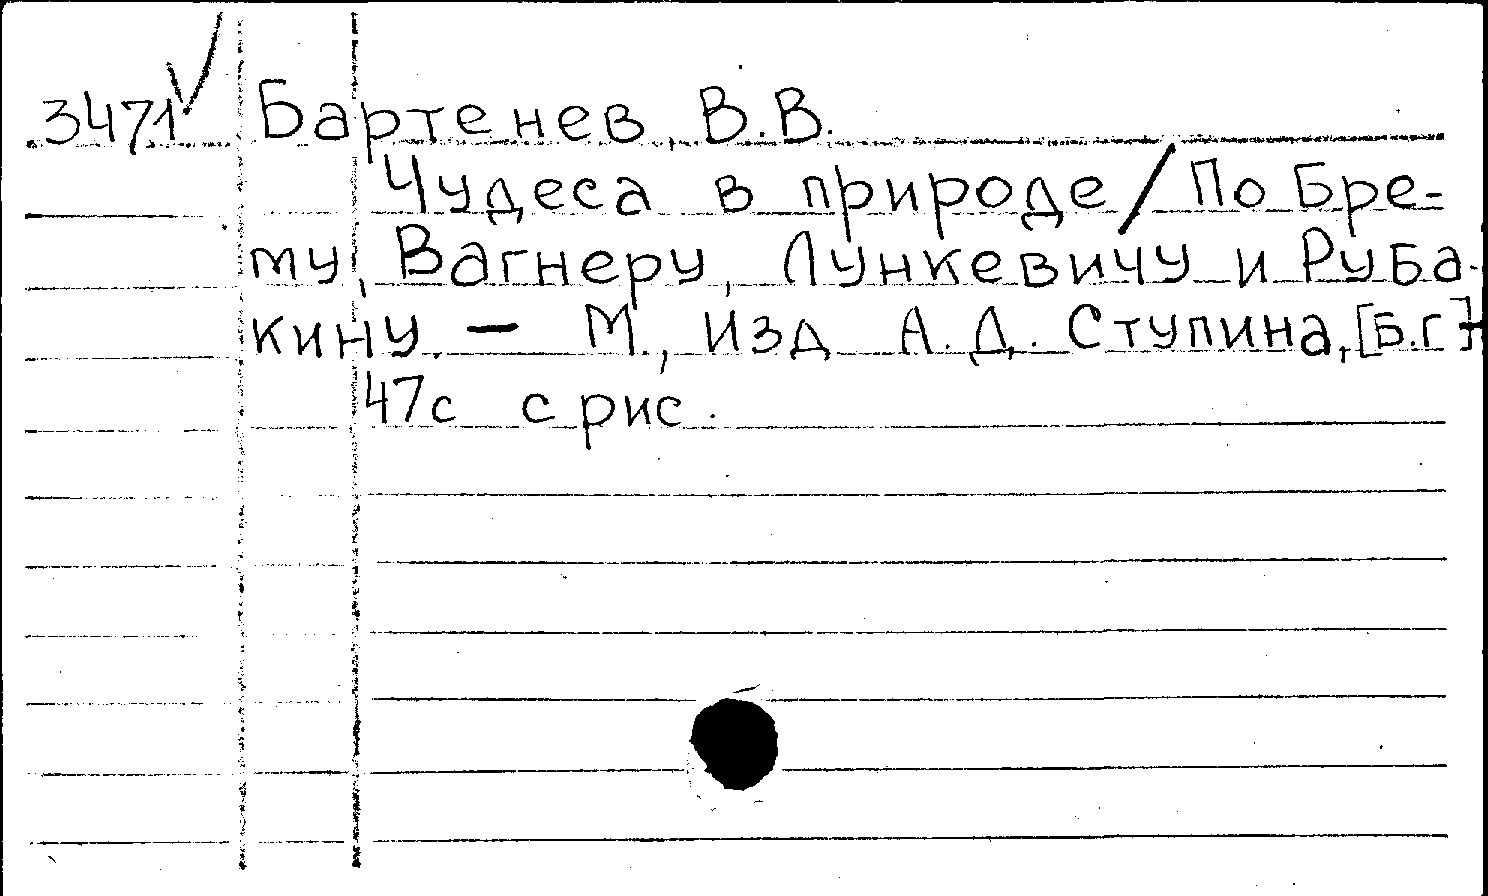 3471 Бартенев, В.В.
Чудеса в природе / По Бре-
му, Вагнеру, Лункевичу и Руба-
кину. — М., Изд А.Д. Ступина, [Б.г.]-
47с с рис.